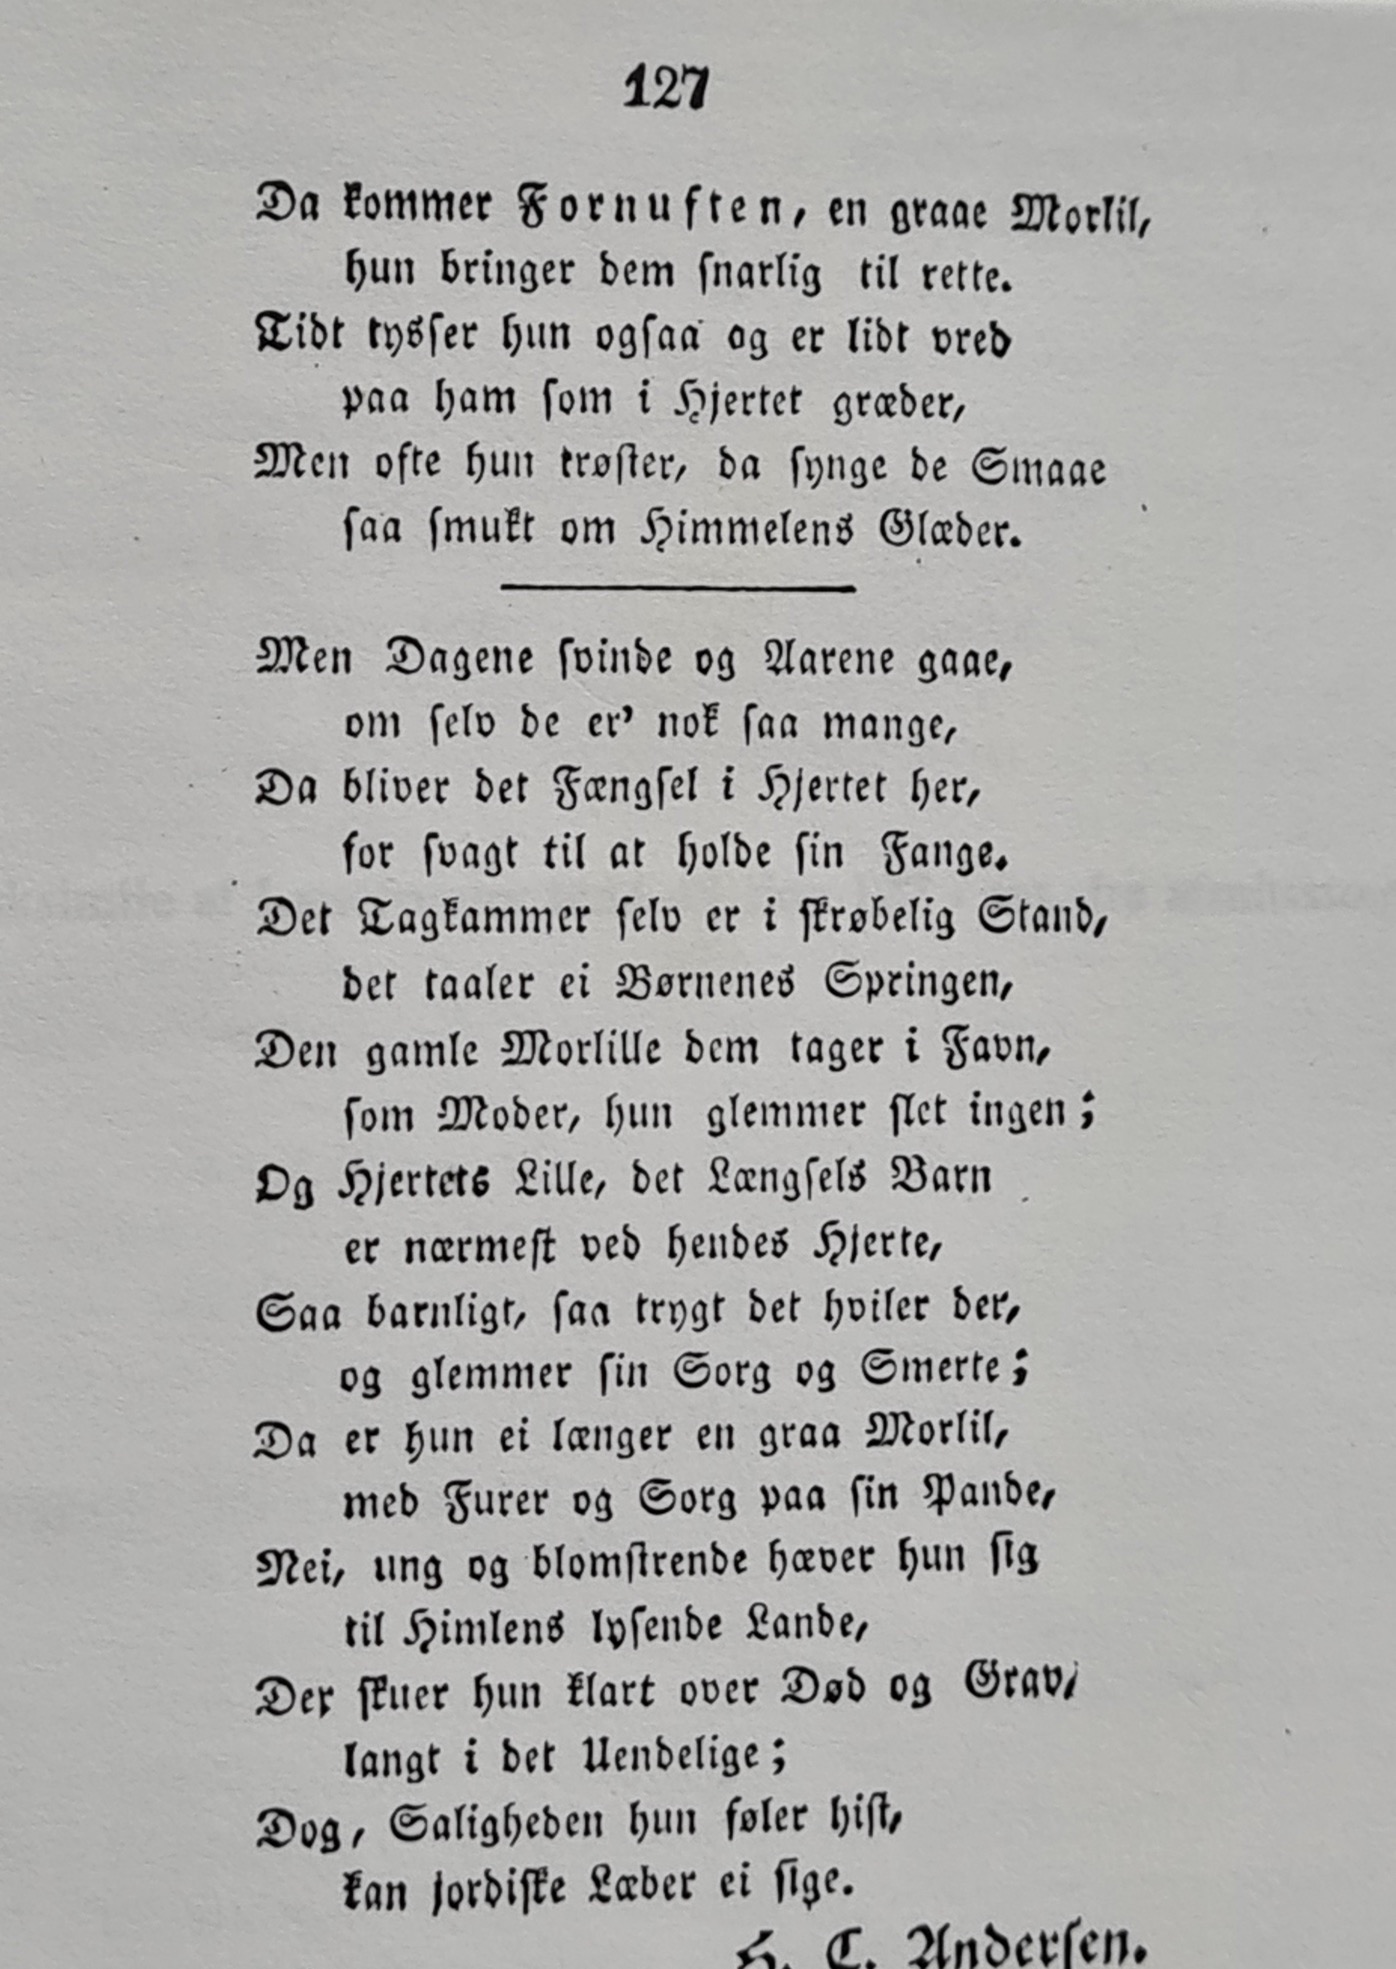 127
Da kommer Fornuften, en graae Morlil,
hun bringer dem snarlig til rette.
Tidt tysser hun ogsaa og er lidt vred
paa ham som i Hjertet græder,
Men ofte hun trøster, da synge de Smaae
saa smukt om Himmelens Glæder.
Men Dagene svinde og Aarene gaae,
om selv de er' nok saa mange,
Da bliver det Fængsel i Hjertet her,
for svagt til at holde sin Fange.
Det Tagkammer selv er i skrøbelig Stand,
det taaler ei Børnenes Springen,
Den gamle Morlille dem tager i Favn,
som Moder, hun glemmer slet ingen;
Og Hjertets Lille, det Længsels Barn
er nærmest ved hendes Hjerte,
Saa barnligt, saa trygt det hviler der,
og glemmer sin Sorg og Smerte;
Da er hun ei længer en graa Morlil,
med Furer og Sorg paa sin Pande,
Nei, ung og blomstrende hæver hun sig
til Himlens lysende Lande,
Der skuer hun klart over Død og Grav,
langt i det Uendelige;
Dog, Saligheden hun føler hist,
kan jordiske Læber ei sige.
H. C. Andersen.